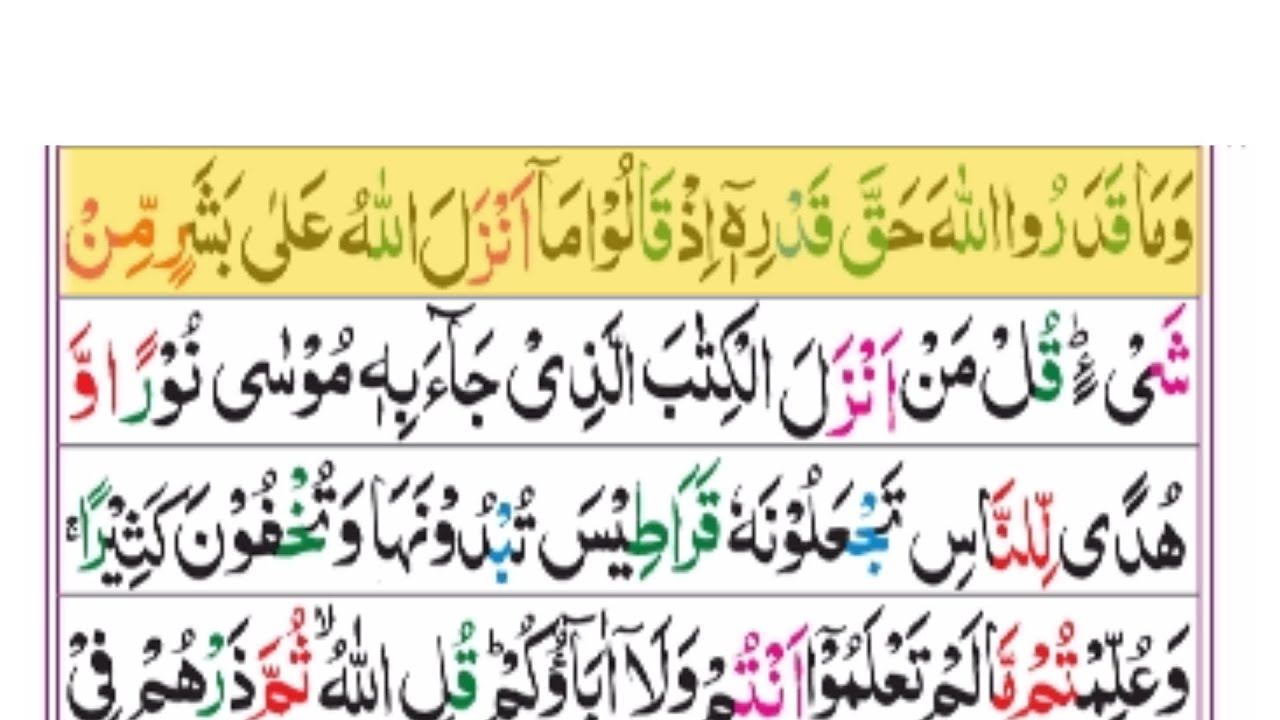 وَمَا قَدَرُوا اللّٰهَ حَقَّ قَدْرِهٖۤ اِذْ قَالُوْا مَاۤ اَنْزَلَ اللّٰهُ عَلٰى بَشَرٍ مِّنْ
شَىْءٍ ؕ قُلْ مَنْ اَنْزَلَ الْكِتٰبَ الَّذِىْ جَآءَ بِهٖ مُوْسٰى نُوْرًا وَّ
هُدًى لِّلنَّاسِ تَجْعَلُوْنَهٗ قَرَاطِيْسَ تُبْدُوْنَهَا وَتُخْفُوْنَ كَثِيْرًا ۚ
وَعُلِّمْتُمْ مَّا لَمْ تَعْلَمُوْۤا اَنْتُمْ وَلَاۤ اٰبَآؤُكُمْ ؕ قُلِ اللّٰهُ ۙ ثُمَّ ذَرْهُمْ فِىْ